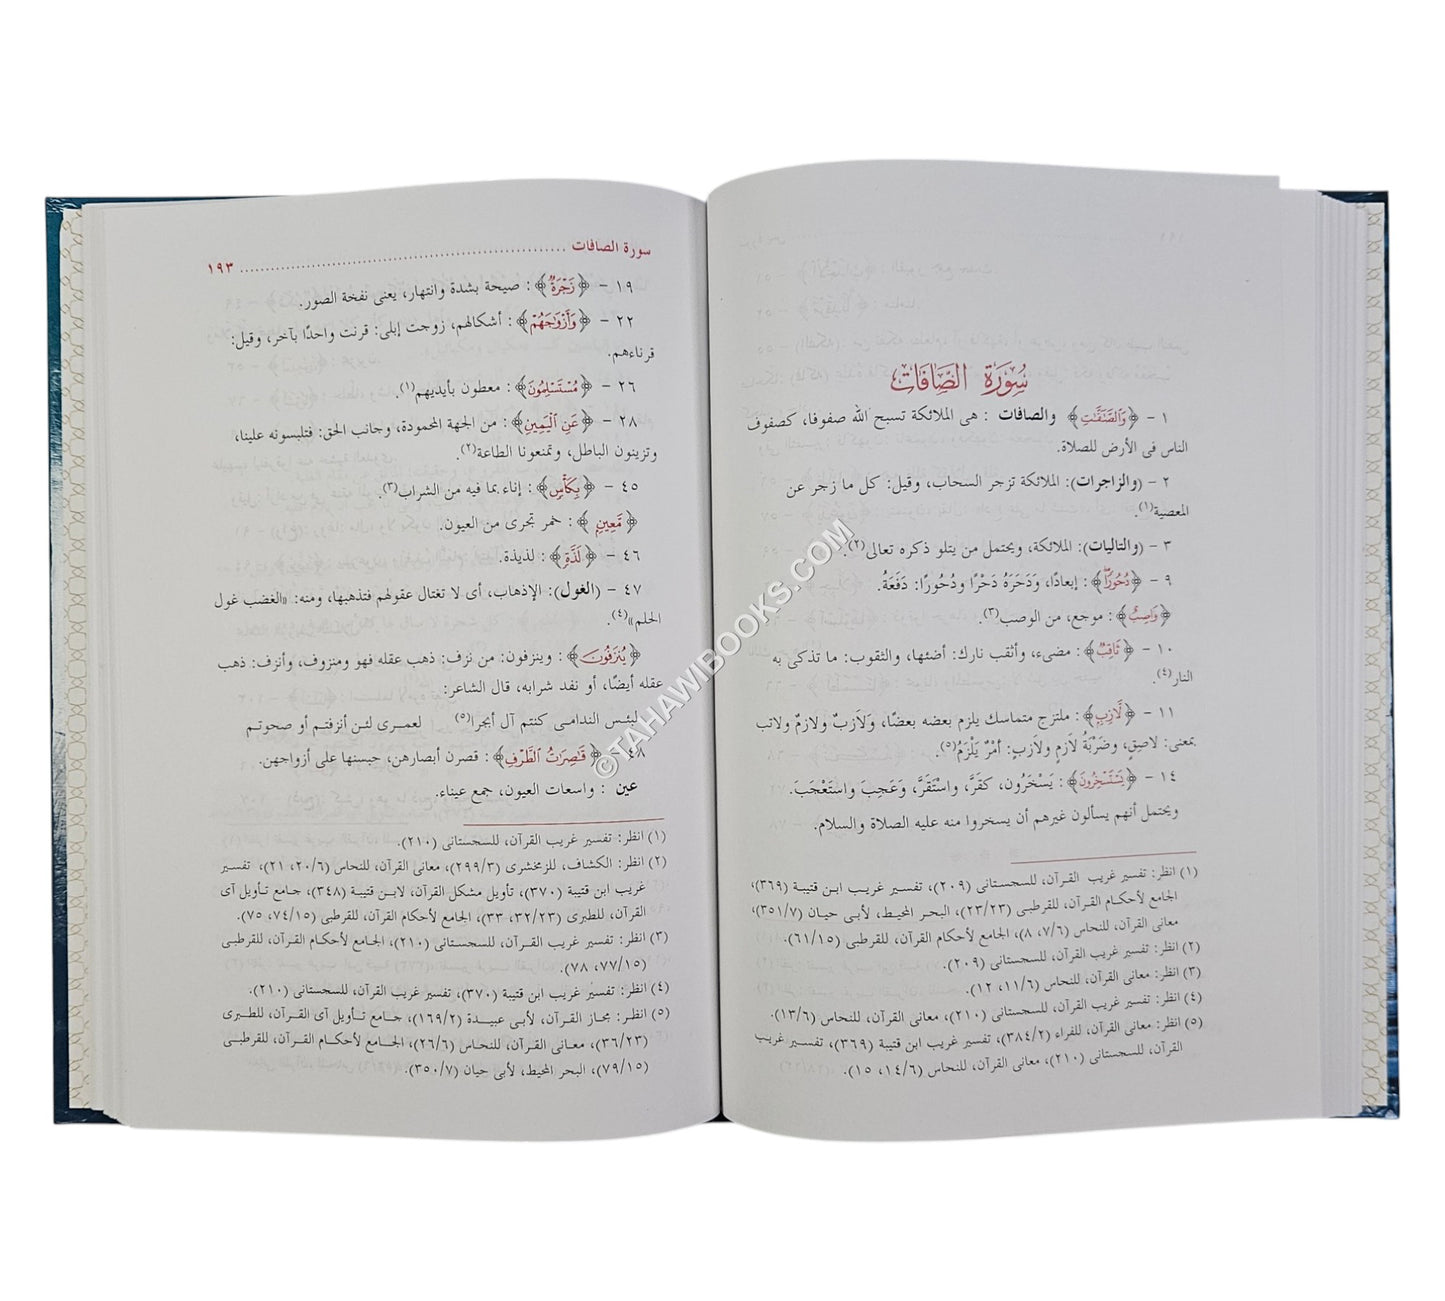 سُورَةُ الصَّافَّاتِ
١ - ﴿وَالصَّٰٓفَّٰتِ﴾ والصافات : هى الملائكة تسبح الله صفوفا، كصفوف
الناس فى الأرض للصلاة.
٢ - (والزاجرات): الملائكة تزجر السحاب، وقيل: كل ما زجر عن
المعصية(١).
٣ - (والتاليات): الملائكة، ويحتمل من يتلو ذكره تعالى(٢).
٩ - ﴿دُحُورًا﴾ : إبعادًا، وَدَحَرَهُ دَحْرًا ودُحُورًا: دَفَعَهُ.
﴿وَاصِبٌ﴾ : موجع، من الوصب(٣).
١٠ - ﴿ثَاقِبٌ﴾ : مضىء، وأثقب نارك: أضئها، والثقوب: ما تذكى به
النار(٤).
١١ - ﴿لَّازِبٍ﴾ : ملتزج متماسك يلزم بعضه بعضًا، وَلَازبٌ ولازمٌ ولاتب
بمعنى: لاصقٍ، وضَرْبَةُ لَازمٍ ولَازبٍ: أمْرٌ يَلْزَمُ(٥).
١٤ - ﴿يَسْتَسْخِرُونَ﴾ : يَسْخَرُون، كقَرَّ، واسْتَقَرَّ، وَعَجِبَ واستَعْجَبَ.
ويحتمل أنهم يسألون غيرهم أن يسخروا منه عليه الصلاة والسلام.
(١) انظر: تفسير غريب القرآن، للسجستانى (٢٠٩)، تفسير غريب ابن قتيبة (٣٦٩)،
الجامع لأحكام القرآن، للقرطبى (٢٣/٢٣)، البحر المحيط، لأبى حيان (٣٥١/٧)،
معانى القرآن، للنحاس (٧/٦، ٨)، الجامع لأحكام القرآن، للقرطبى (٦١/١٥).
(٢) انظر: تفسير غريب القرآن، للسجستانى (٢٠٩).
(٣) انظر: معانى القرآن، للنحاس (١١/٦، ١٢).
(٤) انظر: تفسير غريب القرآن، للسجستانى (٢١٠)، معانى القرآن، للنحاس (١٣/٦).
(٥) انظر: معانى القرآن، للفراء (٣٨٤/٢)، تفسير غريب ابن قتيبة (٣٦٩)، تفسير غريب
القرآن، للسجستانى (٢١٠)، معانى القرآن، للنحاس (١٤/٦، ١٥).
سورة الصافات ........ ١٩٣
١٩ - ﴿زَجْرَةٌ﴾ : صيحة بشدة وانتهار، يعنى نفخة الصور.
٢٢ - ﴿وَأَزْوَٰجَهُمْ﴾ : أشكالهم، زوجت إبلى: قرنت واحدًا بآخر، وقيل:
قرناءهم.
٢٦ - ﴿مُسْتَسْلِمُونَ﴾ : معطون بأيديهم(١).
٢٨ - ﴿عَنِ ٱلْيَمِينِ﴾ : من الجهة المحمودة، وجانب الحق: فتلبسونه علينا،
وتزينون الباطل، وتمنعونا الطاعة(٢).
٤٥ - ﴿بِكَأْسٍ﴾ : إناء بما فيه من الشراب(٣).
﴿مَّعِينٍ﴾ : خمر تجرى من العيون.
٤٦ - ﴿لَذَّةٍ﴾ : لذيذة.
٤٧ - (الغول): الإذهاب، أى لا تغتال عقولهم فتذهبها، ومنه: «الغضب غول
الحلم»(٤).
﴿يُنزَفُونَ﴾ : وينزفون: من نزف: ذهب عقله فهو ومنزوف، وأنزف: ذهب
عقله أيضًا، أو نفد شرابه، قال الشاعر:
لعمرى لئن أنزفتم أو صحوتم لبئس الندامى كنتم آل أبجرا(٥)
٤٨ - ﴿قَٰصِرَٰتُ ٱلطَّرْفِ﴾ : قصرن أبصارهن، حبسنها على أزواجهن.
عين : واسعات العيون، جمع عيناء.
(١) انظر: تفسير غريب القرآن، للسجستانى (٢١٠).
(٢) انظر: الكشاف، للزمخشرى (٢٩٩/٣)، معانى القرآن، للنحاس (٢٠/٦، ٢١)، تفسير
غريب ابن قتيبة (٣٧٠)، تأويل مشكل القرآن، لابن قتيبة (٣٤٨)، جامع تأويل آى
القرآن، للطبرى (٣٢/٢٣، ٣٣)، الجامع لأحكام القرآن، للقرطبى (٧٤/١٥، ٧٥).
(٣) انظر: تفسير غريب القرآن، للسجستانى (٢١٠)، الجامع لأحكام القرآن، للقرطبى
(٧٧/١٥، ٧٨).
(٤) انظر: تفسير غريب ابن قتيبة (٣٧٠)، تفسير غريب القرآن، للسجستانى (٢١٠).
(٥) انظر: مجاز القرآن، لأبى عبيدة (١٦٩/٢)، جامع تأويل آى القرآن، للطبرى
(٣٦/٢٣)، معانى القرآن، للنحاس (٢٦/٦)، الجامع لأحكام القرآن، للقرطبى
(٧٩/١٥)، البحر المحيط، لأبى حيان (٣٥٠/٧).
©TAHAWIBOOKS.COM